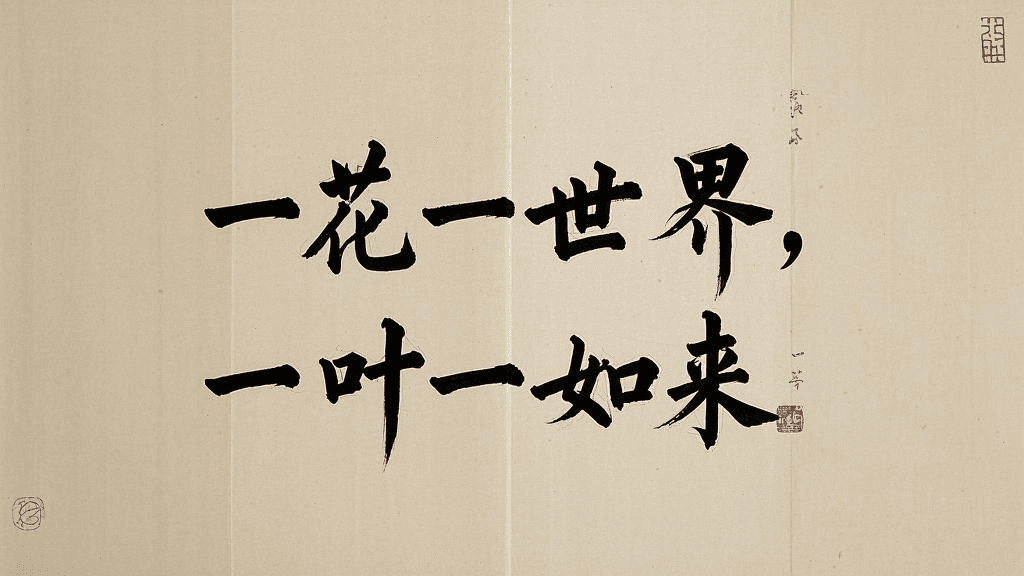 一花一世界，
一叶一如来